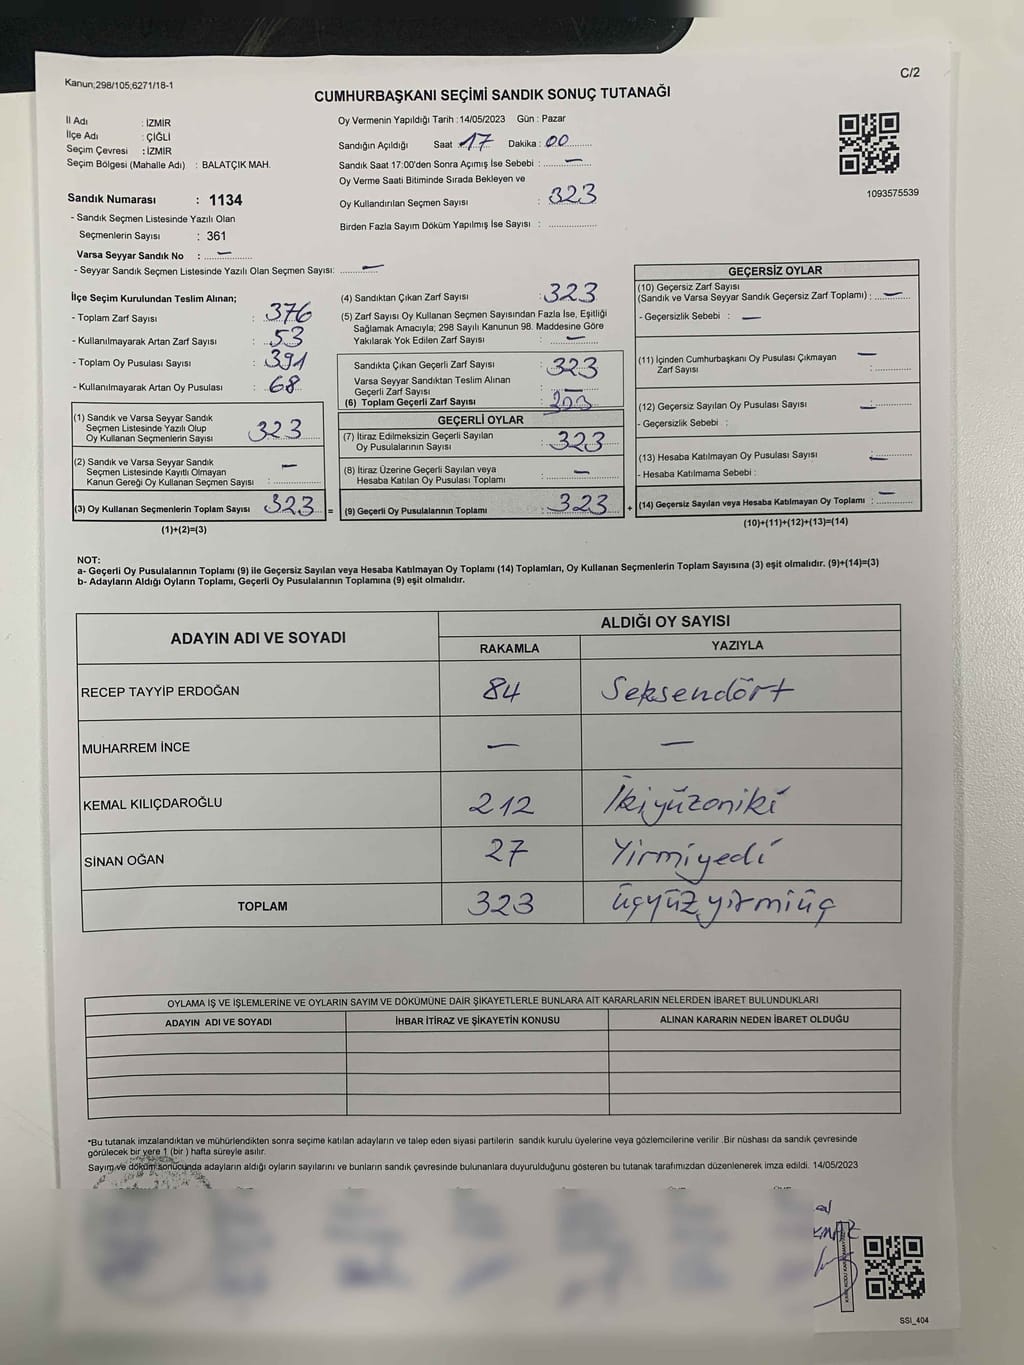 Kanun;298/105;6271/18-1
C/2
CUMHURBAŞKANI SEÇİMİ SANDIK SONUÇ TUTANAĞI
İl Adı : İZMİR
İlçe Adı : ÇİĞLİ
Seçim Çevresi : İZMİR
Seçim Bölgesi (Mahalle Adı) : BALATÇIK MAH.
Sandık Numarası : 1134
- Sandık Seçmen Listesinde Yazılı Olan
Seçmenlerin Sayısı : 361
Varsa Seyyar Sandık No : —
- Seyyar Sandık Seçmen Listesinde Yazılı Olan Seçmen Sayısı: —
Oy Vermenin Yapıldığı Tarih : 14/05/2023 Gün : Pazar
Sandığın Açıldığı Saat 17 Dakika : 00
Sandık Saat 17:00'den Sonra Açımış İse Sebebi : —
Oy Verme Saati Bitiminde Sırada Bekleyen ve
Oy Kullandırılan Seçmen Sayısı : 323
Birden Fazla Sayım Döküm Yapılmış İse Sayısı :
1093575539
İlçe Seçim Kurulundan Teslim Alınan;
- Toplam Zarf Sayısı : 376
- Kullanılmayarak Artan Zarf Sayısı : 53
- Toplam Oy Pusulası Sayısı : 391
- Kullanılmayarak Artan Oy Pusulası : 68
(1) Sandık ve Varsa Seyyar Sandık
Seçmen Listesinde Yazılı Olup
Oy Kullanan Seçmenlerin Sayısı 323
(2) Sandık ve Varsa Seyyar Sandık
Seçmen Listesinde Kayıtlı Olmayan
Kanun Gereği Oy Kullanan Seçmen Sayısı : —
(3) Oy Kullanan Seçmenlerin Toplam Sayısı 323 =
(1)+(2)=(3)
(4) Sandıktan Çıkan Zarf Sayısı : 323
(5) Zarf Sayısı Oy Kullanan Seçmen Sayısından Fazla İse, Eşitliği
Sağlamak Amacıyla; 298 Sayılı Kanunun 98. Maddesine Göre
Yakılarak Yok Edilen Zarf Sayısı : —
Sandıkta Çıkan Geçerli Zarf Sayısı : 323
Varsa Seyyar Sandıktan Teslim Alınan
Geçerli Zarf Sayısı : —
(6) Toplam Geçerli Zarf Sayısı : 323
GEÇERLİ OYLAR
(7) İtiraz Edilmeksizin Geçerli Sayılan
Oy Pusulalarının Sayısı : 323
(8) İtiraz Üzerine Geçerli Sayılan veya
Hesaba Katılan Oy Pusulası Toplamı : —
(9) Geçerli Oy Pusulalarının Toplamı : 323 +
GEÇERSİZ OYLAR
(10) Geçersiz Zarf Sayısı
(Sandık ve Varsa Seyyar Sandık Geçersiz Zarf Toplamı) : —
- Geçersizlik Sebebi : —
(11) İçinden Cumhurbaşkanı Oy Pusulası Çıkmayan —
Zarf Sayısı :
(12) Geçersiz Sayılan Oy Pusulası Sayısı : —
- Geçersizlik Sebebi :
(13) Hesaba Katılmayan Oy Pusulası Sayısı : —
- Hesaba Katılmama Sebebi :
(14) Geçersiz Sayılan veya Hesaba Katılmayan Oy Toplamı : —
(10)+(11)+(12)+(13)=(14)
NOT:
a- Geçerli Oy Pusulalarının Toplamı (9) ile Geçersiz Sayılan veya Hesaba Katılmayan Oy Toplamı (14) Toplamları, Oy Kullanan Seçmenlerin Toplam Sayısına (3) eşit olmalıdır. (9)+(14)=(3)
b- Adayların Aldığı Oyların Toplamı, Geçerli Oy Pusulalarının Toplamına (9) eşit olmalıdır.
ADAYIN ADI VE SOYADI
ALDIĞI OY SAYISI
RAKAMLA YAZIYLA
RECEP TAYYİP ERDOĞAN 84 Seksendört
MUHARREM İNCE — —
KEMAL KILIÇDAROĞLU 212 İkiyüzoniki
SİNAN OĞAN 27 Yirmiyedi
TOPLAM 323 üçyüzyirmiüç
OYLAMA İŞ VE İŞLEMLERİNE VE OYLARIN SAYIM VE DÖKÜMÜNE DAİR ŞİKAYETLERLE BUNLARA AİT KARARLARIN NELERDEN İBARET BULUNDUKLARI
ADAYIN ADI VE SOYADI İHBAR İTİRAZ VE ŞİKAYETİN KONUSU ALINAN KARARIN NEDEN İBARET OLDUĞU
*Bu tutanak imzalandıktan ve mühürlendikten sonra seçime katılan adayların ve talep eden siyasi partilerin sandık kurulu üyelerine veya gözlemcilerine verilir .Bir nüshası da sandık çevresinde
görülecek bir yere 1 (bir ) hafta süreyle asılır.
Sayım ve döküm sonucunda adayların aldığı oyların sayılarını ve bunların sandık çevresinde bulunanlara duyurulduğunu gösteren bu tutanak tarafımızdan düzenlenerek imza edildi. 14/05/2023
SSI_404